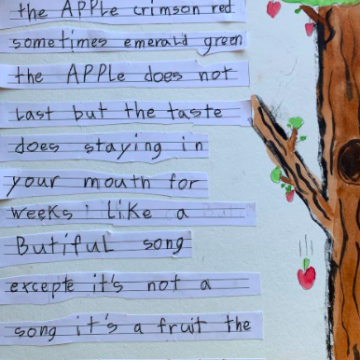 the APPLe crimson red
sometimes emerald green
the APPLe does not
Last but the taste
does staying in
your mouth for
weeks Like a
ButifuL song
excepte it's not a
song it's a fruit the